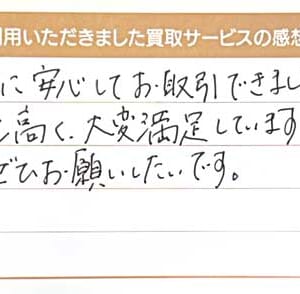 用いただきました買取サービスの感想
に安心してお取引できまし
高く、大変満足しています
ぜひお願いしたいです。